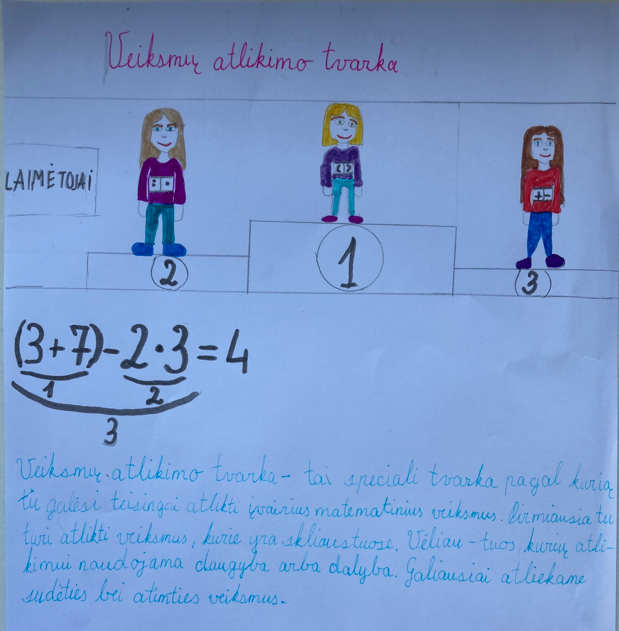 Veiksmų atlikimo tvarka
LAIMĖTOJAI
: •
( )
+ -
2
1
3
(3+7)-2·3=4
1
2
3
Veiksmų atlikimo tvarka - tai speciali tvarka pagal kurią
tu galėsi teisingai atlikti įvairius matematinius veiksmus. Pirmiausia tu
turi atlikti veiksmus, kurie yra skliaustuose. Vėliau - tuos, kurių atli-
kimui naudojama daugyba arba dalyba. Galiausiai atliekame
sudėties bei atimties veiksmus.